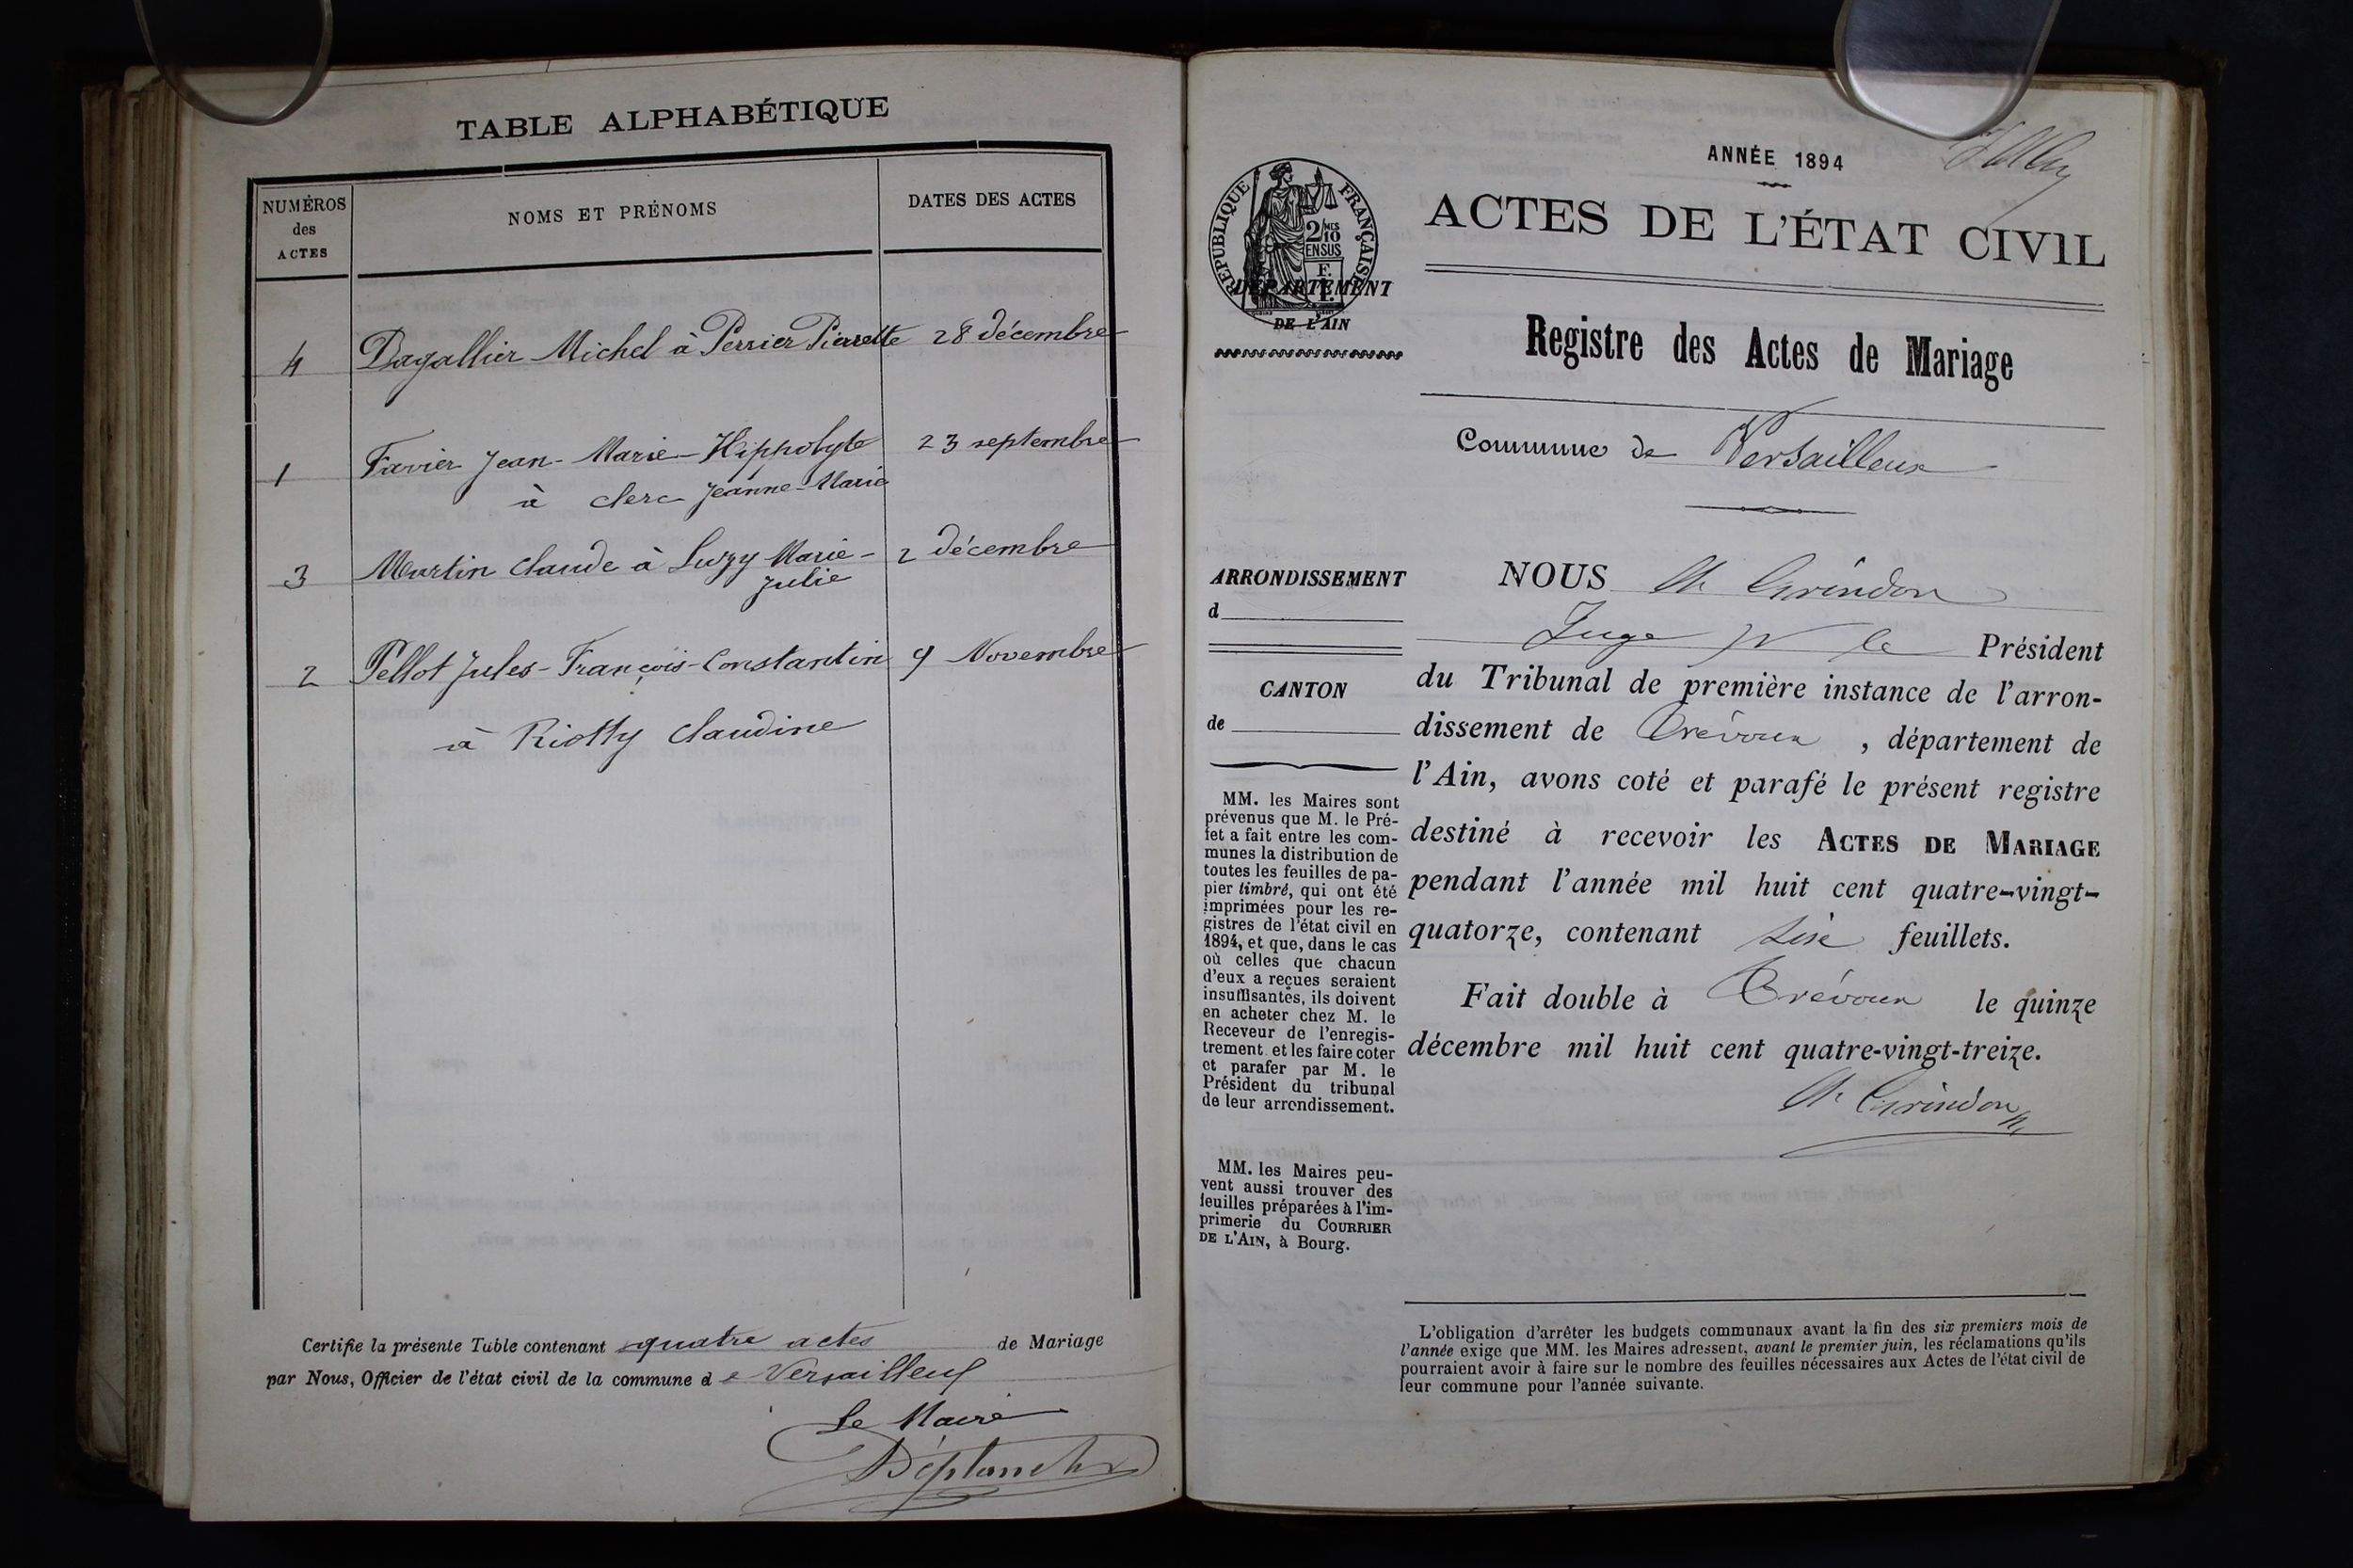 TABLE ALPHABÉTIQUE
NUMÉROS
des
ACTES
NOMS ET PRÉNOMS
DATES DES ACTES
4 Dagallier Michel à Perrier Pierrette 28 décembre
1 Favier Jean-Marie-Hippolyte 23 septembre
à clerc Jeanne-Marie
3 Martin Claude à Luzy Marie- 2 décembre
Julie
2 Pellot Jules-François-Constantin 9 Novembre
à Riotty Claudine
Certifie la présente Table contenant quatre actes de Mariage
par Nous, Officier de l'état civil de la commune de Versailleux
Le Maire
ANNÉE 1894
RÉPUBLIQUE FRANÇAISE
2 MES 10
EN SUS
DÉPARTEMENT
DE L'AIN
ACTES DE L'ÉTAT CIVIL
Registre des Actes de Mariage
Commune de Versailleux
ARRONDISSEMENT
d
CANTON
de
NOUS Ch. Grindon
Juge le Président
du Tribunal de première instance de l'arron-
dissement de Trévoux, département de
l'Ain, avons coté et parafé le présent registre
destiné à recevoir les ACTES DE MARIAGE
pendant l'année mil huit cent quatre-vingt-
quatorze, contenant six feuillets.
Fait double à Trévoux le quinze
décembre mil huit cent quatre-vingt-treize.
Ch. Grindon
MM. les Maires sont
prévenus que M. le Pré-
fet a fait entre les com-
munes la distribution de
toutes les feuilles de pa-
pier timbré, qui ont été
imprimées pour les re-
gistres de l'état civil en
1894, et que, dans le cas
où celles que chacun
d'eux a reçues seraient
insuffisantes, ils doivent
en acheter chez M. le
Receveur de l'enregis-
trement et les faire coter
et parafer par M. le
Président du tribunal
de leur arrondissement.
MM. les Maires peu-
vent aussi trouver des
feuilles préparées à l'im-
primerie du COURRIER
DE L'AIN, à Bourg.
L'obligation d'arrêter les budgets communaux avant la fin des six premiers mois de
l'année exige que MM. les Maires adressent, avant le premier juin, les réclamations qu'ils
pourraient avoir à faire sur le nombre des feuilles nécessaires aux Actes de l'état civil de
leur commune pour l'année suivante.